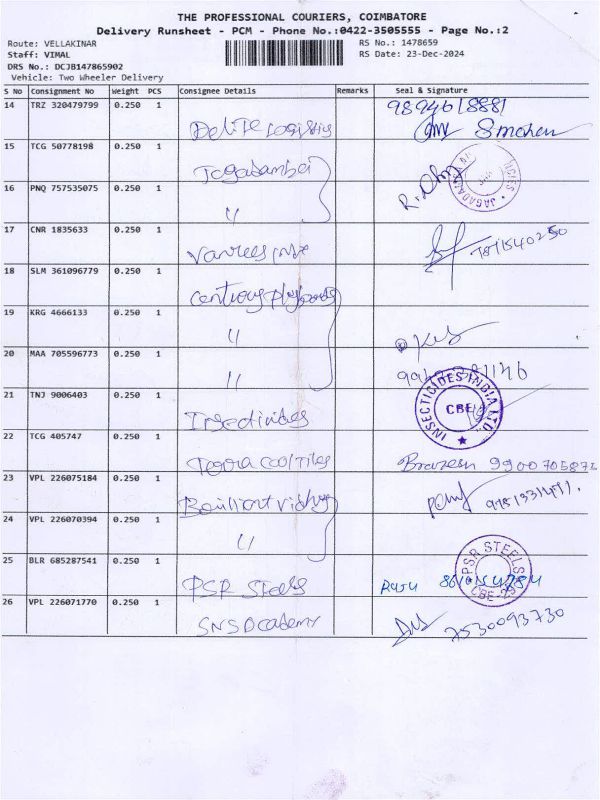 THE PROFESSIONAL COURIERS, COIMBATORE
Delivery Runsheet - PCM - Phone No.:0422-3505555 - Page No.:2
Route: VELLAKINAR RS No.: 1478659
Staff: VIMAL RS Date: 23-Dec-2024
DRS No.: DCJB147865902
Vehicle: Two Wheeler Delivery
S No Consignment No Weight PCS Consignee Details Remarks Seal & Signature
14 TRZ 320479799 0.250 1
Delite Logistics
15 TCG 50778198 0.250 1
Jagadambai
16 PNQ 757535075 0.250 1
"
17 CNR 1835633 0.250 1
18 SLM 361096779 0.250 1
19 KRG 4666133 0.250 1
"
20 MAA 705596773 0.250 1
"
21 TNJ 9006403 0.250 1
INSECTICIDES INDIA LTD.
CBE
22 TCG 405747 0.250 1
9900705872
23 VPL 226075184 0.250 1
24 VPL 226070394 0.250 1
"
25 BLR 685287541 0.250 1
PSR Steels Raju
PSR STEELS
CBE-29
26 VPL 226071770 0.250 1
SNS Academy 7530093730